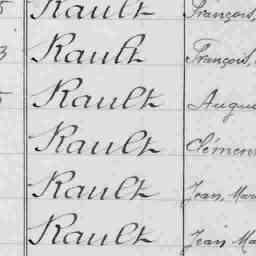 Rault François,
3 Rault François,
Rault Augu
Rault Clémen
Rault Jean, Mar
Rault Jean Ma